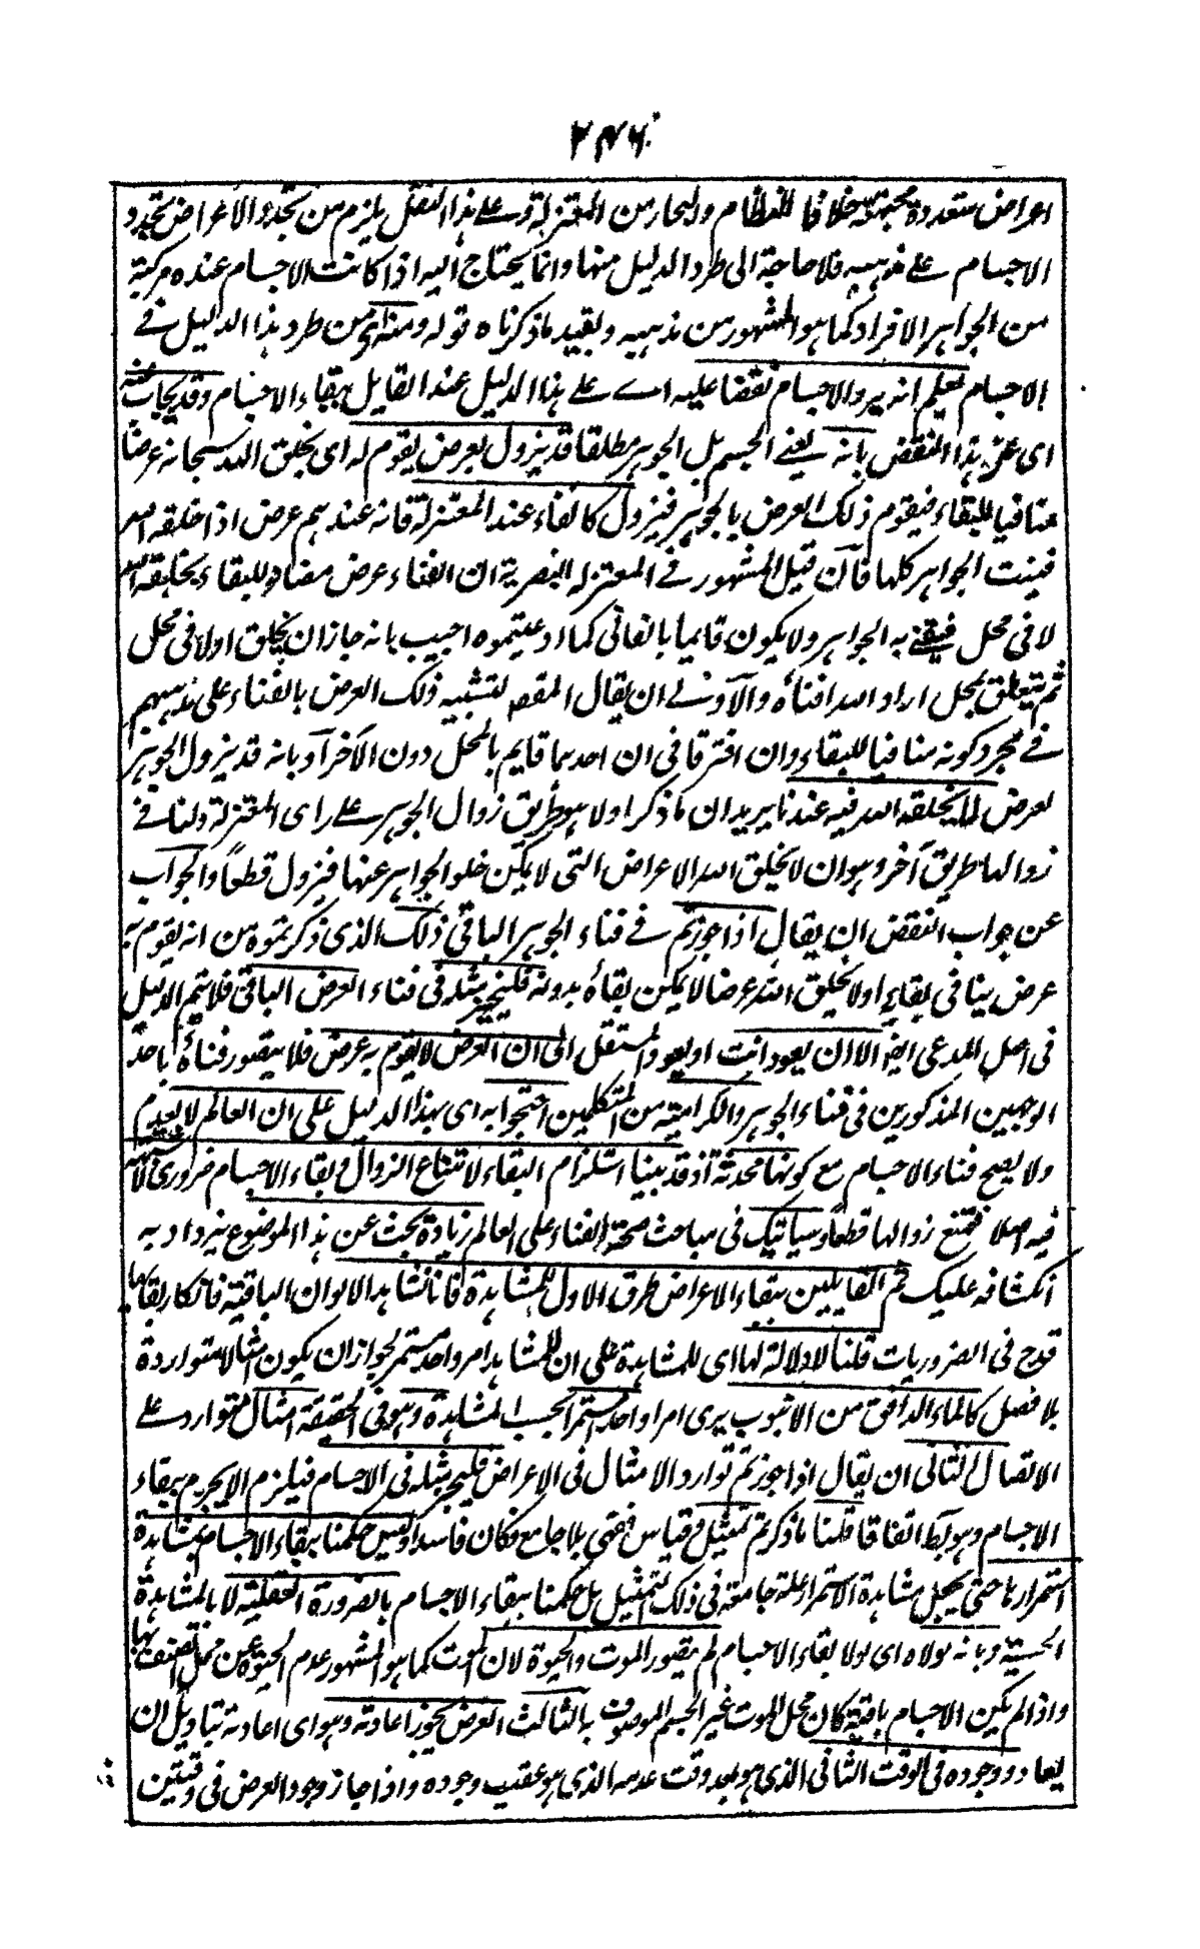 ۲۴۶
اعراض متعددة مجتمعة خلافا للنظام والنجار من المعتزلة وعلى هذا النقل يلزم من تجدد الاعراض تجدد
الاجسام على مذهبه فلا حاجة الى طرد الدليل منها وانما يحتاج اليه اذا كانت الاجسام عنده مركبة
من الجواهر الافراد كما هو المشهور من مذهبه ويفيد ما ذكرناه قوله ومنه اى من طرد هذا الدليل فى
الاجسام يعلم انه يرد الاجسام نقضا عليه اے على هذا الدليل عند القايل ببقاء الاجسام وقد يجاب عنه
اى عن هذا النقض بانه يعنى الجسم بل الجوهر مطلقا قد يزول بعرض يقوم له اى يخلق الله سبحانه عرضا
منافيا للبقاء فيقوم ذلك العرض بالجوهر فيزول كالفناء عند المعتزلة فانه عندهم عرض اذا خلقه الله
فنيت الجواهر كلها فان قيل المشهور فى المعتزله البصرية ان الفناء عرض مضاد للبقاء يخلقه الله
لا فى محل فيفنى به الجواهر ولا يكون قايما بالفانى كما ادعيتموه اجيب بانه جاز ان يخلق اولا فى محل
ثم يتعلق بمحل اراد الله افناءه والاولى ان يقال المقصو تشبيه ذلك العرض بالفناء على مذهبهم
فى مجرد كونه منافيا للبقاء وان افترقا فى ان احدهما قايم بالمحل دون الآخر او بانه قد يزول الجوهر
لعرض لا يخلقه الله فيه عندنا يريد ان ما ذكر اولا هو طريق زوال الجوهر على راى المعتزلة ولنا فى
زوالها طريق آخر وهو ان لا يخلق الله الاعراض التى لا يمكن خلو الجواهر عنها فيزول قطعا والجواب
عن جواب النقض ان يقال اذا جوزتم فى فناء الجوهر الباقى ذلك الذى ذكرتموه من انه يقوم به
عرض ينافى بقايه او لا يخلق الله عرضا لا يمكن بقاؤه بدونه فليجز مثله فى فناء العرض الباقى فلا يتم الدليل
فى اصل المدعى ايضا الا ان يعود انت او يعود المستقل الى ان العرض لا يقوم به عرض فلا يتصور فناؤه باحد
الوجهين المذكورين فى فناء الجوهر والكرامية من المتكلمين احتجوا به اى بهذا الدليل على ان العالم لا يعدم
ولا يصح فناء الاجسام مع كونها محدثة اذ قد بينا استلزام البقاء لامتناع الزوال وبقاء الاجسام ضرورى لا شبهة
فيه اصلا فيمتنع زوالها قطعا وسياتيك فى مباحث صحة الفناء على العالم زيادة بحث عن هذا الموضوع يزداد به
انكشافه عليك ثم القايلين ببقاء الاعراض طرق الاول المشاهدة فانا نشاهد الالوان الباقية فانكار بقائها
قدح فى الضروريات قلنا لا دلالة لها اى للمشاهدة على ان المشاهد امر واحد مستمر لجواز ان يكون امثالا متواردة
بلا فصل كالماء الدافق من الانبوب يرى امرا واحدا مستمرا بحسب المشاهدة وهو فى الحقيقة امثال متوارد على
الاتصال الثانى ان يقال اذا جوزتم توارد الامثال فى الاعراض فليجز مثله فى الاجسام فيلزم ان لا يجزم ببقاء
الاجسام وهو بط اتفاقا قلنا ما ذكرتم تمثيل وقياس فقهى بلا جامع فكان فاسدا وليس حكمنا ببقاء الاجسام بمشاهدة
استمرارها حتى يجعل مشاهدة الاستمرار علة جامعة فى ذلك التمثيل بل حكمنا ببقاء الاجسام بالضرورة العقلية لا بالمشاهدة
الحسية وبانه لولاه اى لولا بقاء الاجسام لم يتصور الموت والحيوة لان الموت كما هو المشهور عدم الحيوة عن محل اتصف بها
واذا لم يكن الاجسام باقية كان محل الموت غير الجسم الموصوف بالثالث العرض يجوز اعادته وهو اى اعادته بتاويل ان
يعاد وجوده فى الوقت الثانى الذى هو بعد وقت عدمه الذى هو عقيب وجوده واذا جاز وجود العرض فى وقتين